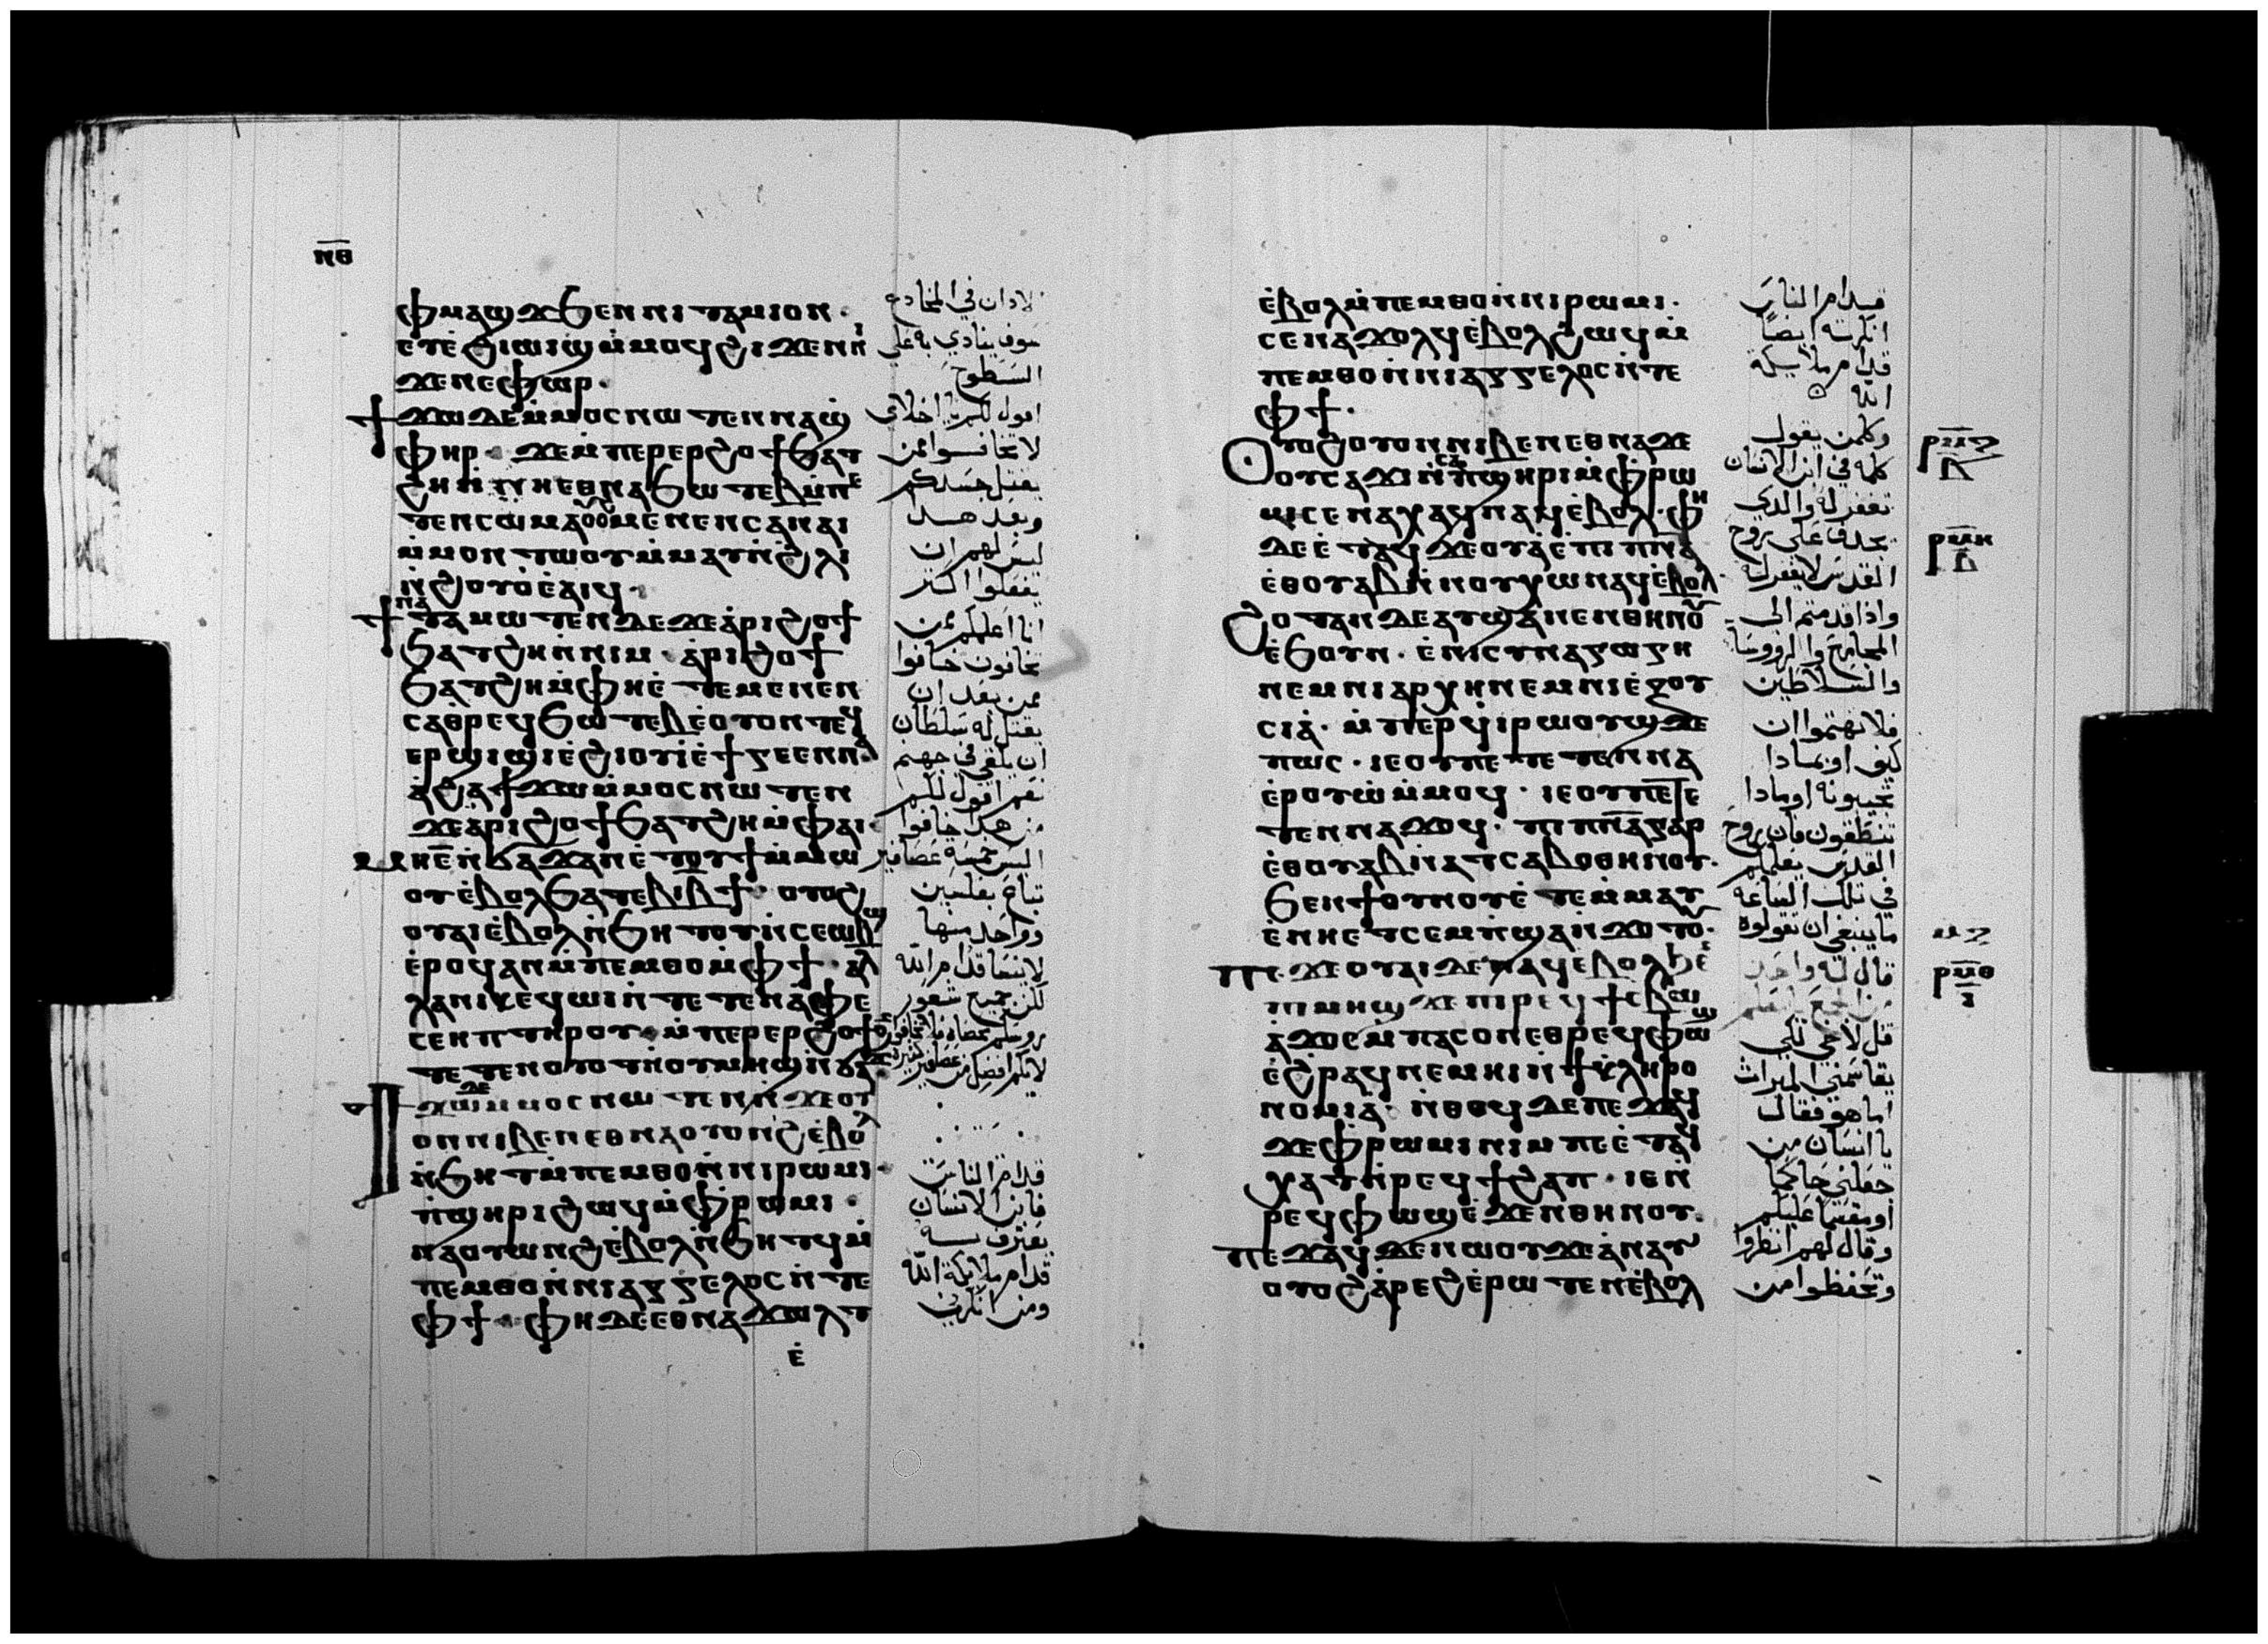 ⲛ̅ⲑ̅
ϥⲙⲁϣϫ ϧⲉⲛ ⲛⲓⲧⲁⲙⲓⲟⲛ ·
ⲉⲧⲉϩⲓⲱⲓϣ ⲙ̇ⲙⲟϥ ϩⲓϫⲉⲛ ⲛⲓ
ϫⲉⲛⲉⲫⲱⲣ ·
ϯϫⲱ ⲇⲉ ⲙ̇ⲙⲟⲥ ⲛⲱⲧⲉⲛ ⲛⲁϣ
ⲫⲏⲣ · ϫⲉ ⲙ̇ⲡⲉⲣⲉⲣϩⲟϯ ϧⲁⲧ
ϩⲏ ⲛ̇ⲛⲏⲉⲑⲛⲁϧⲱⲧⲉⲃ ⲙ̇ⲡⲉ
ⲧⲉⲛⲥⲱⲙⲁ ⲟⲩⲟϩ ⲙⲉⲛⲉⲛⲥⲁⲛⲁⲓ
ⲙ̇ⲙⲟⲛⲧⲱⲟⲩ ⲙ̇ⲙⲁⲩ ⲛ̇ϩⲗⲓ
ⲛ̇ϩⲟⲩⲟ̇ ⲉ̇ⲁⲓϥ ·
ϯⲛⲁⲧⲁⲙⲱⲧⲉⲛ ⲇⲉ ϫⲉ ⲁ̇ⲣⲓϩⲟϯ
ϧⲁⲧϩⲏ ⲛ̇ⲛⲓⲙ · ⲁ̇ⲣⲓϩⲟϯ
ϧⲁⲧϩⲏ ⲙ̇ⲫⲏⲉ̇ⲧⲉ ⲙⲉⲛⲉⲛ
ⲥⲁⲑⲣⲉϥϧⲱⲧⲉⲃ ⲉ̇ⲟⲩⲟⲛⲧⲉϥ
ⲉⲣϣⲓϣⲓ ⲉ̇ϩⲓⲟⲩⲓ̇ ⲉ̇ϯⲅⲉⲉⲛⲛⲁ
ⲁ̇ϩⲁ ϯϫⲱ ⲙ̇ⲙⲟⲥ ⲛⲱⲧⲉⲛ
ϫⲉ ⲁ̇ⲣⲓϩⲟϯ ϧⲁⲧϩⲏ ⲙ̇ⲫⲁⲓ ·
ⲙⲏ ⲉ̅ ⲛ̇ϭⲁϫ ⲁⲛ ⲉ̇ⲧⲟⲩϯ ⲙ̇ⲙⲱ
ⲟⲩ ⲉ̇ⲃⲟⲗ ϧⲁ ⲧⲉⲃⲓ ⲃ̅ϯ · ⲟⲩⲟϩ
ⲟⲩⲁⲓ ⲉ̇ⲃⲟⲗ ⲛ̇ϧⲏⲧⲟⲩ ⲛ̇ⲥⲉⲱⲃϣ
ⲉ̇ⲣⲟϥ ⲁⲛ ⲙ̇ⲡⲉⲙⲑⲟ ⲙ̇ⲫϯ · ⲁⲗ
ⲗⲁ ⲛⲓⲕⲉϥⲱⲓ ⲛ̇ⲧⲉ ⲧⲉⲛⲁ̇ⲫⲉ
ⲥⲉⲏⲡ ⲧⲏⲣⲟⲩ · ⲙ̇ⲡⲉⲣⲉⲣϩⲟϯ ⲟⲩⲛ
ⲧⲉⲧⲉⲛⲟⲩⲟⲧ ⲛ̇ⲟⲩⲙⲏϣ ⲛ̇ϭⲁϫ
ϯϫⲱ ⲇⲉ ⲙ̇ⲙⲟⲥ ⲛⲱⲧⲉⲛ ϫⲉ ⲟⲩ
ⲟⲛ ⲛⲓⲃⲉⲛ ⲉⲑⲛⲁⲟⲩⲟⲛϩ ⲉ̇ⲃⲟⲗ
ⲛ̇ϧⲏⲧ ⲙ̇ⲡⲉⲙⲑⲟ ⲛ̇ⲛⲓⲣⲱⲙⲓ ·
ⲡ̇ϣⲏⲣⲓ ϩⲱϥ ⲙ̇ⲫⲣⲱⲙⲓ ·
ⲛⲁⲟⲩⲱⲛϩ ⲉ̇ⲃⲟⲗ ⲛ̇ϧⲏⲧϥ ⲙ̇
ⲡⲉⲙⲑⲟ ⲛ̇ⲛⲓⲁⲅⲅⲉⲗⲟⲥ ⲛ̇ⲧⲉ
ⲫϯ · ⲫⲏ ⲇⲉ ⲉⲑⲛⲁϫⲱⲗⲧ
ⲉ̇
لادان في المخادع
سوف ينادي به على
السطوح
اقول لكم يا اخلائي
لا تخافوا ممن
يقتل جسدكم
وبعد هدا
ليس لهم ان
يفعلوا اكثر
انا اعلمكم ممن
تخافون خافوا
ممن بعد ان
يقتل له سلطان
ان يلقي في جهنم
نعم اقول لكم
من هدا خافوا
اليس خمسة عصافير
تباع بفلسين
وواحد منها
لا ينسا قدام الله
لكن جميع شعور
روسكم محصاه فلا تخافوا
لانكم افضل من عصافير كثيرة
قدام الناس
فابن الانسان
يعترف به
قدام ملايكة الله
ومن انكرني
ⲉ̇ⲃⲟⲗ ⲙ̇ⲡⲉⲙⲑⲟ ⲛ̇ⲛⲓⲣⲱⲙⲓ ·
ⲥⲉⲛⲁϫⲟⲗϥ ⲉ̇ⲃⲟⲗ ϩⲱϥ ⲙ̇
ⲡⲉⲙⲑⲟ ⲛ̇ⲛⲓⲁⲅⲅⲉⲗⲟⲥ ⲛ̇ⲧⲉ
ⲫϯ ·
ⲟⲩⲟϩ ⲟⲩⲟⲛ ⲛⲓⲃⲉⲛ ⲉⲑⲛⲁϫⲉ
ⲟⲩⲥⲁϫⲓ ⲛ̇ⲥⲁ ⲡ̇ϣⲏⲣⲓ ⲙ̇ⲫⲣⲱ
ⲙⲓ ⲥⲉⲛⲁⲭⲁϥ ⲛⲁϥ ⲉ̇ⲃⲟⲗ · ⲫⲏ
ⲇⲉ ⲉ̇ⲧⲁϥϫⲉⲟⲩⲁ̇ ⲉ̇ⲡⲓⲡⲛ̅ⲁ̅
ⲉ̇ⲑⲟⲩⲁⲃ ⲛ̇ⲛⲟⲩⲭⲱ ⲛⲁϥ ⲉ̇ⲃⲟⲗ ·
ϩⲟⲧⲁⲛ ⲇⲉ ⲁⲩϣⲁⲛⲉⲛⲑⲏⲛⲟⲩ
ⲉ̇ϧⲟⲩⲛ · ⲉ̇ⲛⲓⲥⲩⲛⲁⲅⲱⲅⲏ
ⲛⲉⲙ ⲛⲓⲁⲣⲭⲏ ⲛⲉⲙ ⲛⲓⲉ̇ⲝⲟⲩ
ⲥⲓⲁ̇ · ⲙ̇ⲡⲉⲣϥⲓⲣⲱⲟⲩϣ ϫⲉ
ⲡⲱⲥ · ⲓⲉ ⲟⲩ ⲡⲉ ⲧⲉⲧⲉⲛⲛⲁ
ⲉ̇ⲣⲟⲩⲱ̇ ⲙ̇ⲙⲟϥ · ⲓⲉ ⲟⲩ ⲡⲉⲧⲉ
ⲧⲉⲛⲛⲁϫⲟϥ · ⲡⲓⲡⲛ̅ⲁ̅ ⲅⲁⲣ
ⲉ̇ⲑⲟⲩⲁⲃ ⲛⲁⲧⲥⲁⲃⲟⲑⲏⲛⲟⲩ ·
ϧⲉⲛ ϯⲟⲩⲛⲟⲩ ⲉ̇ⲧⲉⲙ̇ⲙⲁⲩ
ⲉ̇ⲛⲏ ⲉⲧⲥⲉⲙ̇ⲡϣⲁ ⲛ̇ϫⲟⲧⲟⲩ ·
ⲡⲉϫⲉ ⲟⲩⲁⲓ ⲇⲉ ⲛⲁϥ ⲉ̇ⲃⲟⲗ ϧⲉⲛ
ⲡⲓⲙⲏϣ ϫⲉ ⲡⲓⲣⲉϥϯⲥⲃⲱ
ⲁ̇ϫⲟⲥ ⲙ̇ⲡⲁⲥⲟⲛ ⲉⲑⲣⲉϥⲫⲱϣ
ⲉ̇ϩⲣⲁϥ ⲛⲉⲙⲏⲓ ⲛ̇ϯⲕ̇ⲗⲏⲣⲟ
ⲛⲟⲙⲓⲁ̇ · ⲛ̇ⲑⲟϥ ⲇⲉ ⲡⲉϫⲁϥ
ϫⲉ ⲫⲣⲱⲙⲓ ⲛⲓⲙ ⲡⲉ ⲉ̇ⲧⲁϥ
ⲭⲁⲧ ⲛ̇ⲣⲉϥϯϩⲁⲡ · ⲓⲉ ⲛ̇
ⲣⲉϥⲫⲱϣ ⲉ̇ϫⲉⲛⲑⲏⲛⲟⲩ ·
ⲡⲉϫⲁϥ ⲇⲉ ⲛⲱⲟⲩ ϫⲉ ⲁ̇ⲛⲁⲩ
ⲟⲩⲟϩ ⲁ̇ⲣⲉϩ ⲉ̇ⲣⲱⲧⲉⲛ ⲉ̇ⲃⲟⲗ
قدام الناس
انكرته ايضا
قدام ملايكة
الله
وكلمن يقول
كلمه في ابن الانسان
تغفر له والدي
يجدف على روح
القدس لا يغفر له
واذا قدمتم الى
المجامع والرووسا
والسلاطين
فلا تهتموا ان
كيف او بمادا
تجيبونه او مادا
تنطقون فان روح
القدس يعلمكم
في تلك الساعة
ما ينبغي ان تقولوه
قال له واحد
من الجمع يا معلم
قل لاخي لكي
يقاسمني الميراث
اما هو فقال
يا انسان من
جعلني حاكما
او مقسما عليكم
وقال لهم انظروا
وتحفظوا من
ⲣ̅ⲙ̅ⲍ̅
ⲣ̅ⲙ̅ⲏ̅
ⲙⲍ
ⲣ̅ⲙ̅ⲑ̅
ⲓ̅